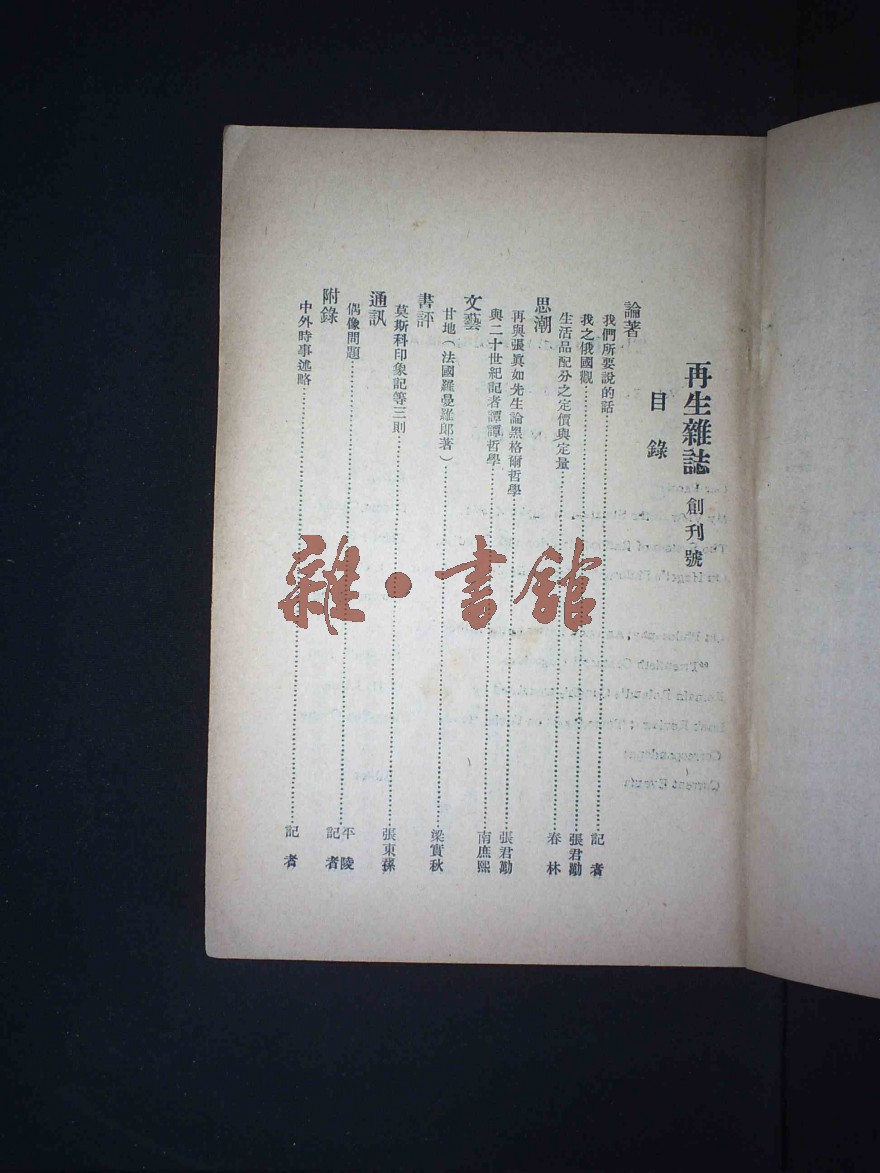 再生雜誌 創刊號
目錄
論著
我們所要說的話 記者
我之俄國觀 張君勱
生活品配分之定價與定量 春林
思潮
再與張眞如先生論黑格爾哲學 張君勱
與二十世紀記者譚譚哲學 南庶熙
文藝
甘地(法國羅曼羅郎著) 梁實秋
書評
莫斯科印象記等三則 張東蓀
通訊
偶像問題 平陵 記者
附錄
中外時事述略 記者
雜·書館